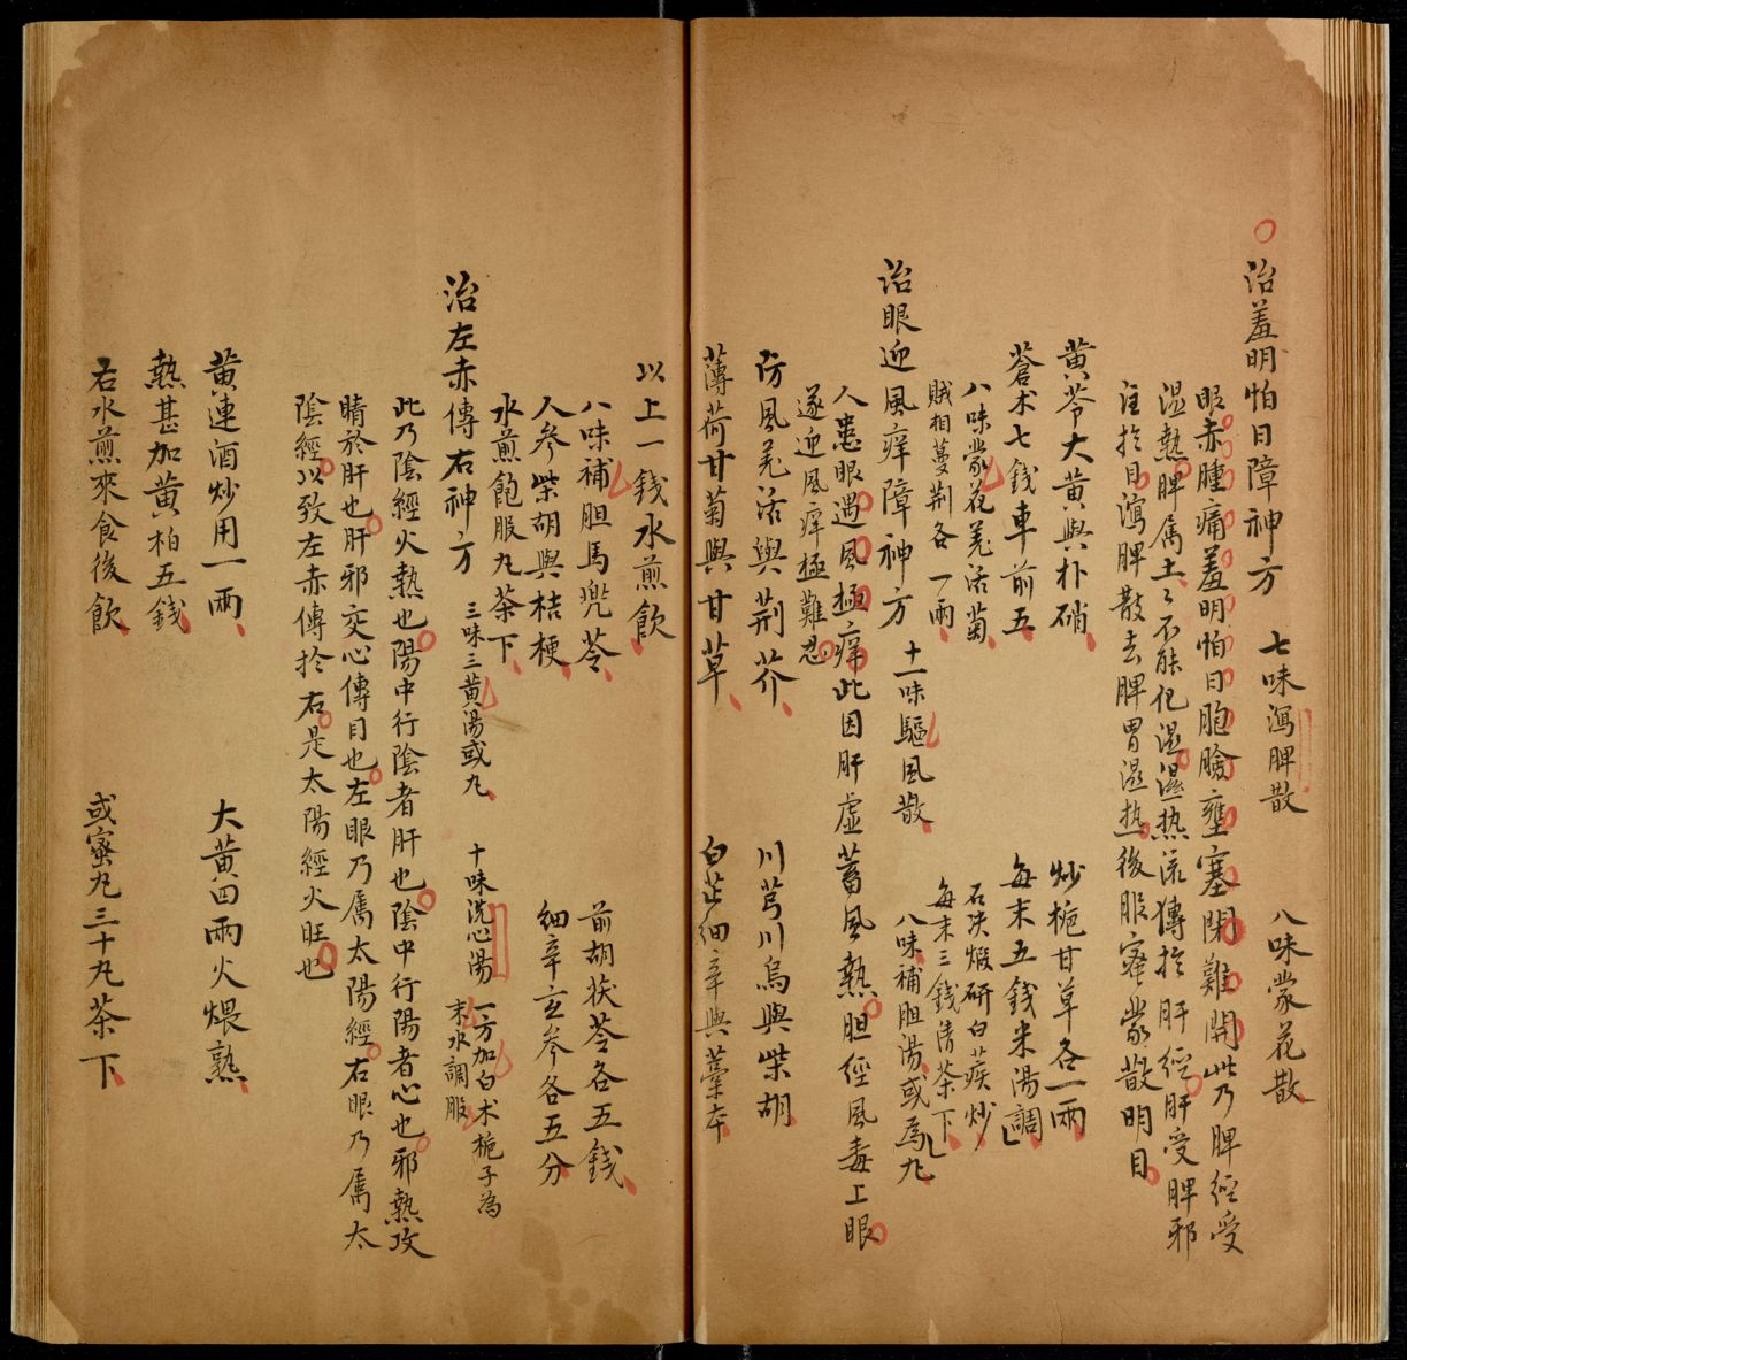 治羞明怕日障神方　七味瀉脾散　八味蒙花散
眼赤腫痛羞明怕日胞瞼壅塞閉難開此乃脾經受
濕熱脾属土〻不能化濕濕热流傳於肝經肝受脾邪
注於目瀉脾散去脾胃濕热後服蜜蒙散明目
黄芩大黄與朴硝　炒梔甘草各一兩
蒼术七錢車前五　每末五錢米湯調
八味蒙花羌活菊　石決煅研白蒺炒
賊相蔓荆各一兩　每末三錢清茶下
治眼迎風痒障神方　十一味驅風散　八味補胆湯或為丸
人患眼遇風極痒此因肝虛蓄風熱胆經風毒上眼
遂迎風痒極難忍
防風羌活與荆芥　川芎川烏與柴胡
薄荷甘菊與甘草　白芷細辛與藁本
以上一錢水煎飲
八味補胆馬兜苓　前胡茯苓各五錢
人参柴胡與桔梗　細辛玄参各五分
水煎飽服丸茶下
治左赤傳右神方　三味三黄湯或丸　十味洗心湯　一方加白术梔子為
末水調服
此乃陰經火熱也陽中行陰者肝也陰中行陽者心也邪熱攻
睛於肝也肝邪交心傳目也左眼乃属太陽經右眼乃属太
陰經以致左赤傳於右是太陽經火旺也
黄連酒炒用一兩　大黄四兩火煨熟
熱甚加黄柏五錢
右水煎來食後飲　或蜜丸三十丸茶下